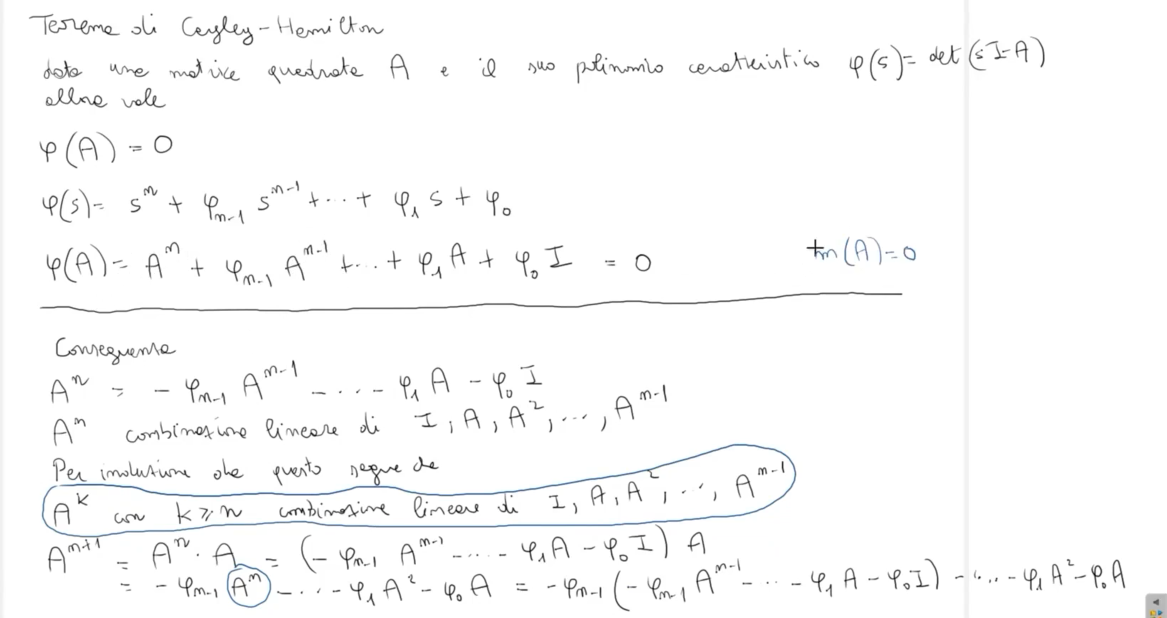 Teorema di Cayley-Hamilton
data una matrice quadrata A e il suo polinomio caratteristico φ(s) = det(sI-A)
allora vale
φ(A) = 0
φ(s) = sⁿ + φₙ₋₁ sⁿ⁻¹ + ... + φ₁ s + φ₀
φ(A) = Aⁿ + φₙ₋₁ Aⁿ⁻¹ + ... + φ₁ A + φ₀ I = 0 m(A)=0
Conseguenza
Aⁿ = - φₙ₋₁ Aⁿ⁻¹ - ... - φ₁ A - φ₀ I
Aⁿ combinazione lineare di I, A, A², ..., Aⁿ⁻¹
Per induzione da questo segue che
Aᵏ con k ≥ n combinazione lineare di I, A, A², ..., Aⁿ⁻¹
Aⁿ⁺¹ = Aⁿ · A = (- φₙ₋₁ Aⁿ⁻¹ - ... - φ₁ A - φ₀ I) A
= - φₙ₋₁ Aⁿ - ... - φ₁ A² - φ₀ A = - φₙ₋₁ (- φₙ₋₁ Aⁿ⁻¹ - ... - φ₁ A - φ₀ I) - ... - φ₁ A² - φ₀ A